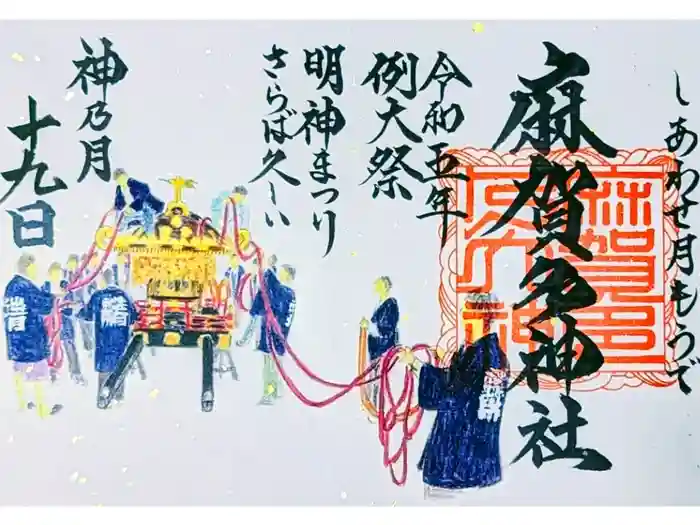 しあわせ月もうで
麻賀多神社
令和五年
例大祭
明神まつり
さらば久〜い
神乃月
十九日